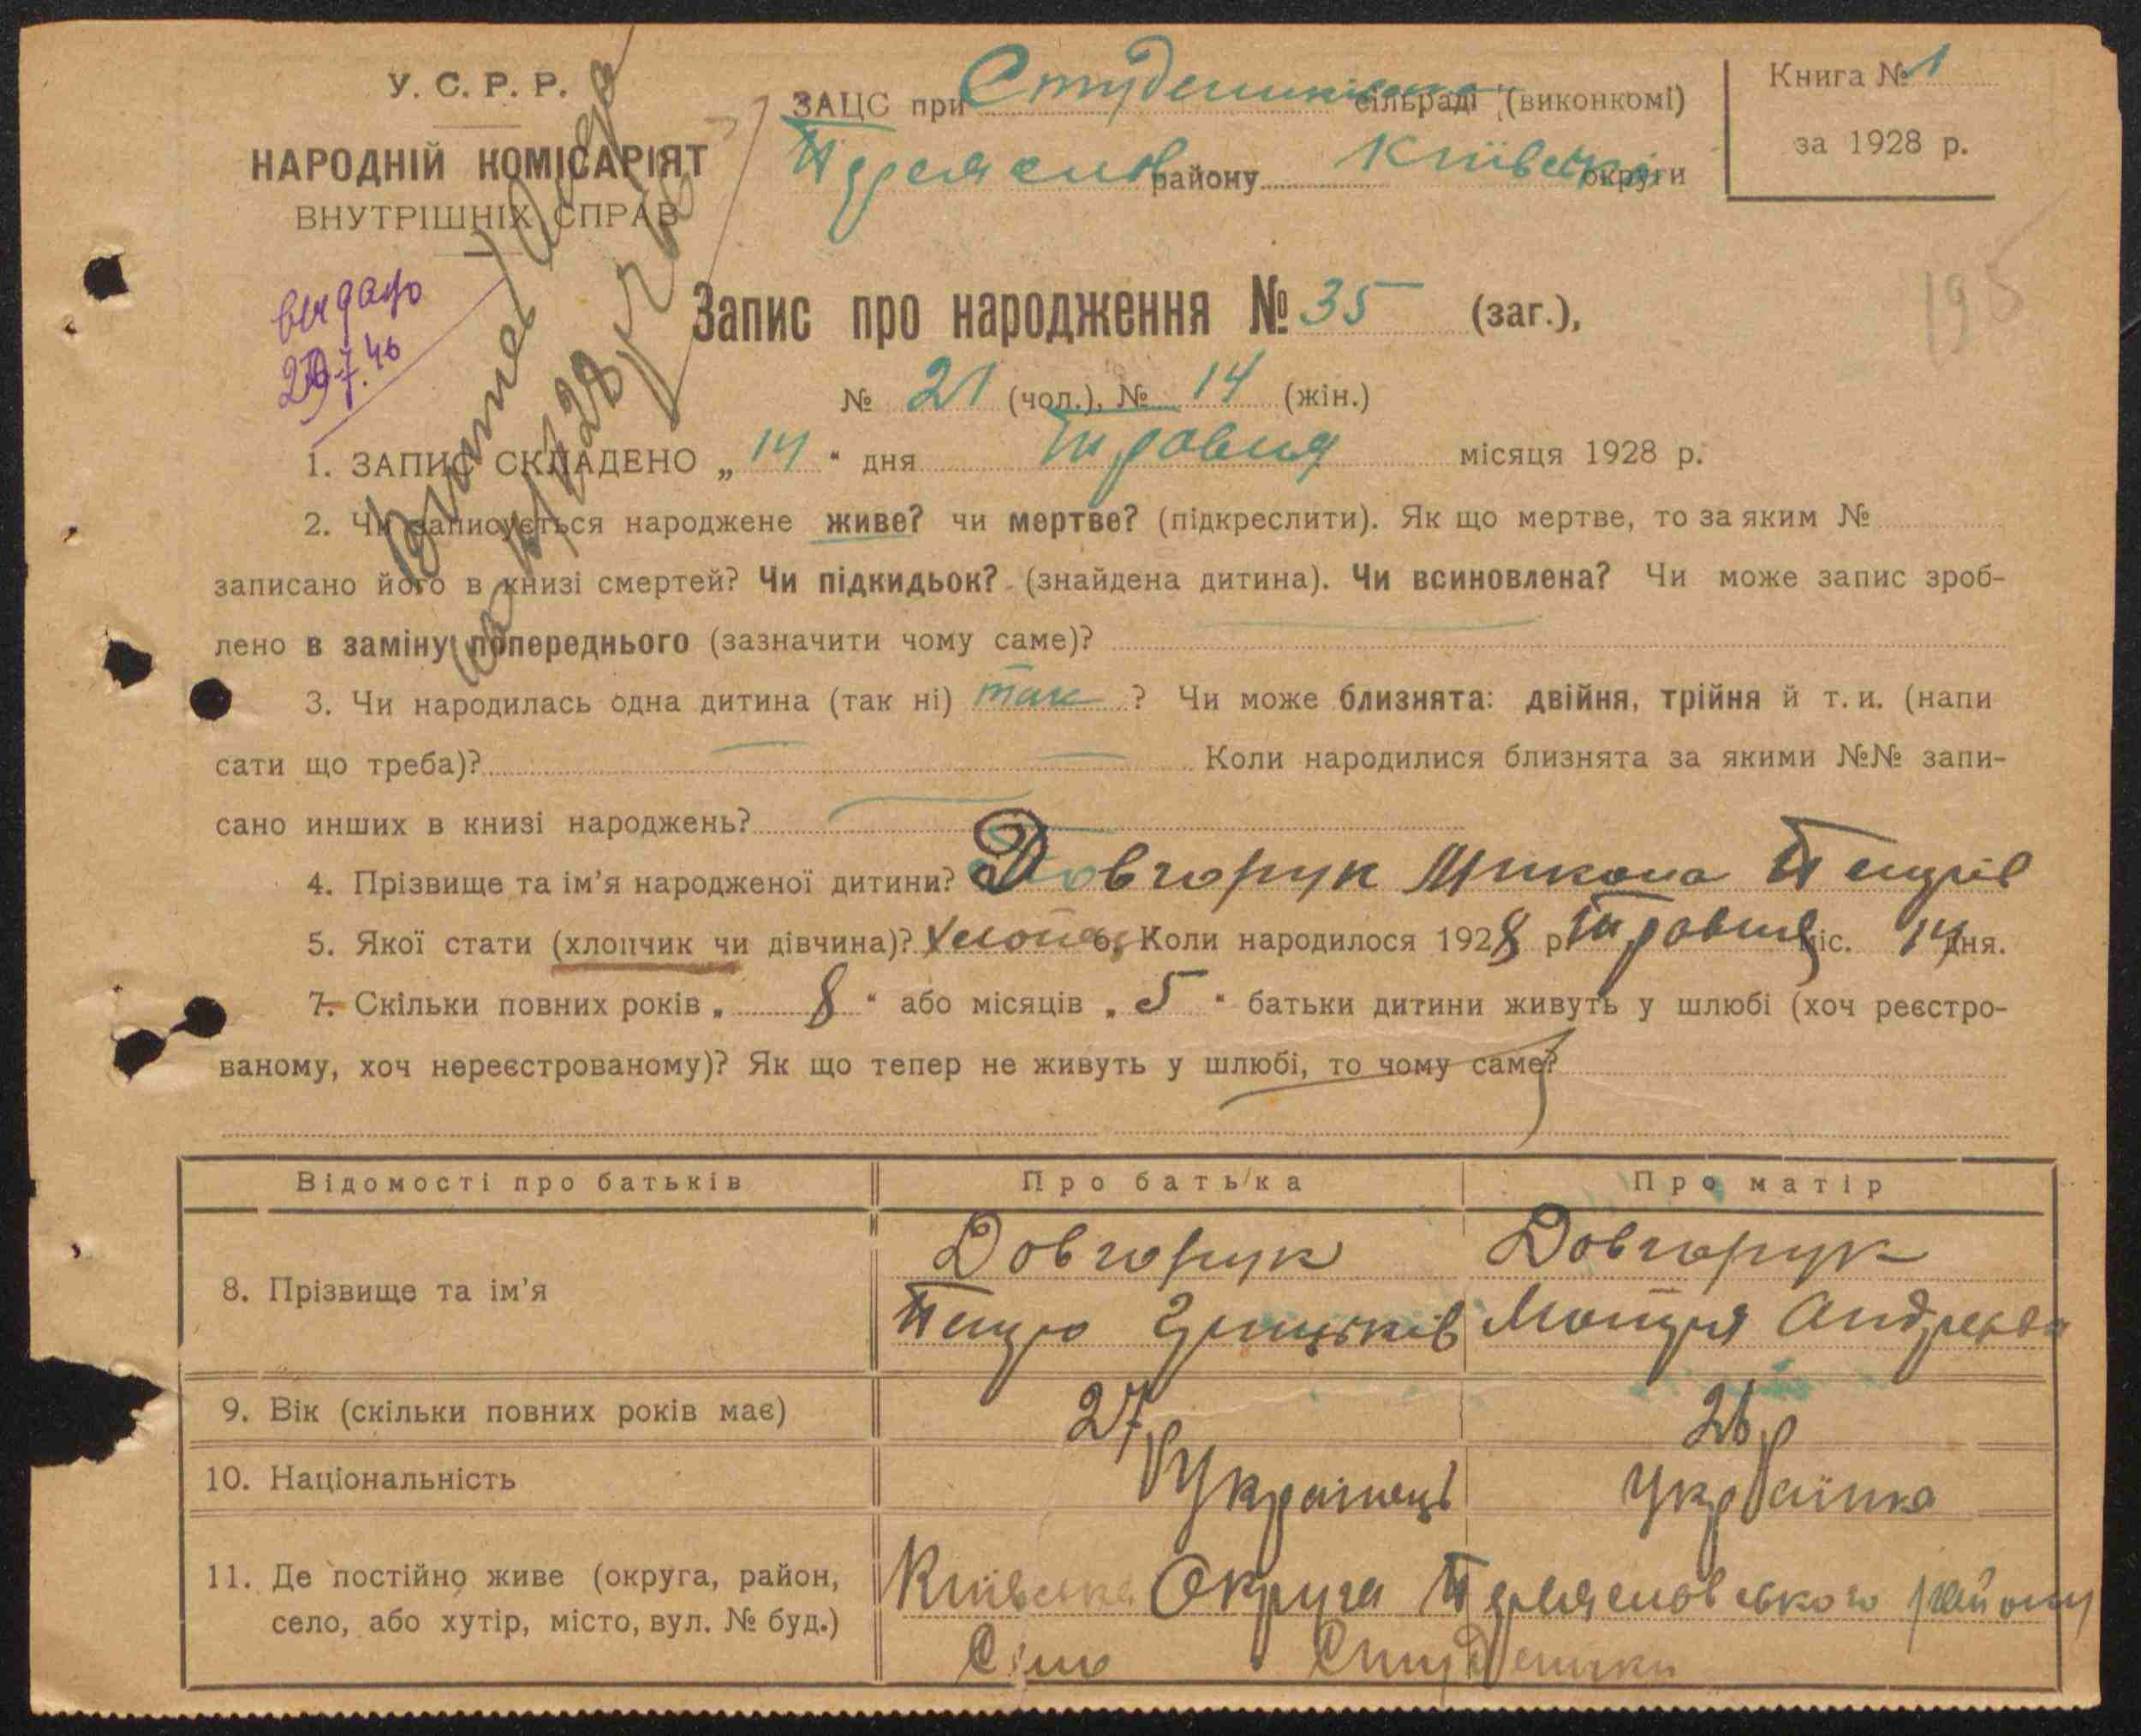 У. С. Р. Р.
НАРОДНІЙ КОМІСАРІЯТ
ВНУТРІШНІХ СПРАВ
ЗАЦС при сільраді (виконкомі)
Переяслів району Київської округи
Книга № 1
за 1928 р.
видано
29.7.46
195
Запис про народження № 35 (заг.),
№ 21 (чол.), № 14 (жін.)
1. ЗАПИС СКЛАДЕНО „ 14 " дня Травня місяця 1928 р.
2. Чи записується народжене живе? чи мертве? (підкреслити). Як що мертве, то за яким №
записано його в книзі смертей? Чи підкидьок? (знайдена дитина). Чи всиновлена? Чи може запис зроб-
лено в заміну попереднього (зазначити чому саме)?
3. Чи народилась одна дитина (так ні) так ? Чи може близнята: двійня, трійня й т. и. (напи
сати що треба)? Коли народилися близнята за якими №№ запи-
сано инших в книзі народжень?
4. Прізвище та ім'я народженої дитини? Довгорук Микола Петрів
5. Якої стати (хлопчик чи дівчина)? Хлопець 6. Коли народилося 1928 р. Травня міс. 14 дня.
7. Скільки повних років „ 8 " або місяців „ 5 " батьки дитини живуть у шлюбі (хоч реєстро-
ваному, хоч нереєстрованому)? Як що тепер не живуть у шлюбі, то чому саме?
Відомості про батьків Про батька Про матір
8. Прізвище та ім'я
Довгорук Довгорук
Петро Грицьків Мотря Андреєва
9. Вік (скільки повних років має) 27 р 26 р
10. Національність Українець Українка
11. Де постійно живе (округа, район,
село, або хутір, місто, вул. № буд.)
Київська Округа Переяславського району
Село Студеники